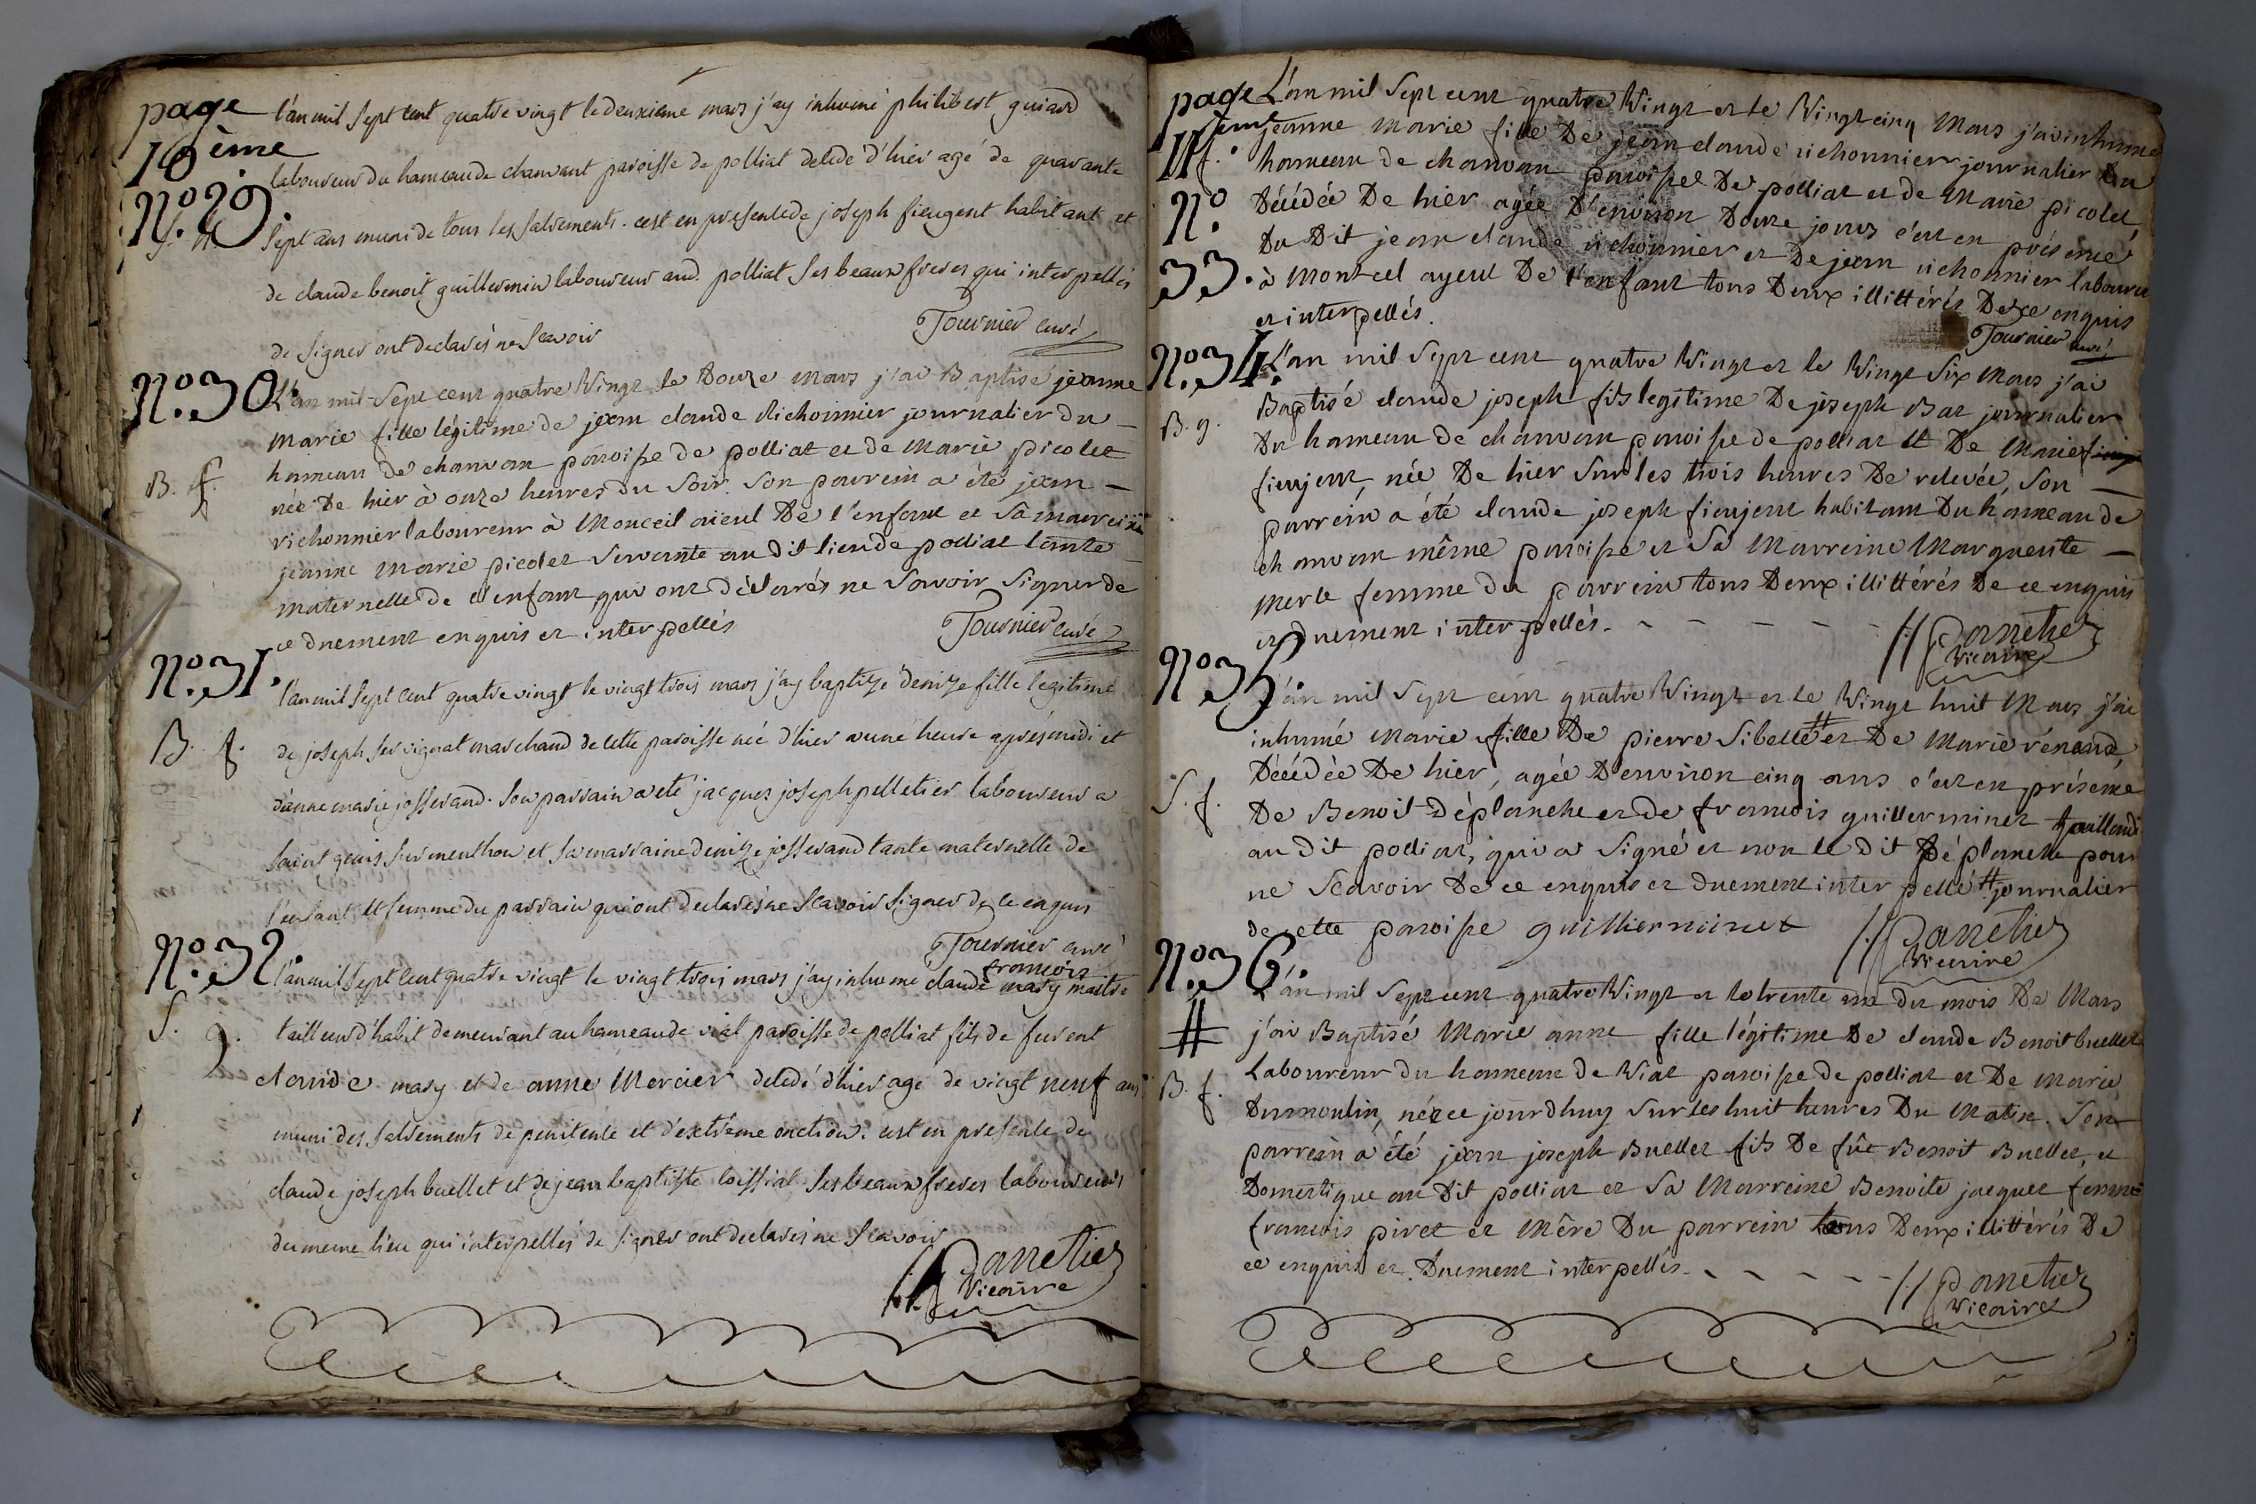 page
10ème
N.º 29.
S. g.
l'an mil sept cent quatre vingt le deuxieme mars j'ay inhumé philibert guiard
laboureur du hameau de chanvant paroisse de polliat decedé d'hier agé de quarante
sept ans muni de tous les sacrements. c'est en presence de joseph fieugent habitant et
de claude benoit guillermin laboureur aud. polliat ses beaux freres qui interpellés
de signer ont declarés ne scavoir
Tournier curé
N.º 30.
B. f.
L'an mil Sept cent quatre Vingt le Douze Mars j'ai Baptisé jeanne
Marie fille légitime de jean claude vichonnier journalier du
hameau de chanvan paroisse de polliat et de Marie picolet
née De hier à onze heures du Soir. Son parrein a été jean
vichonnier laboureur à Monceil aieul De l'enfant et Sa marreine
jeanne Marie picolet Servante au Dit lieu de polliat tante
Maternelle de l'enfant qui ont Déclarés ne Savoir Signer de
ce Duement enquis et interpellés
Tournier curé
N.º 31.
B. f.
l'an mil sept cent quatre vingt le vingt trois mars j'ay baptizé denize fille legitime
de joseph servignat marchand de cette paroisse née d'hier a une heure après midi et
d'anne marie josserand. son parrain a eté jacques joseph pelletier laboureur a
saint genis sur menthon et sa marraine denize josserand tante maternelle de
l'enfant et femme du parrain qui ont declarés ne scavoir signer de ce enquis
Tournier curé
N.º 32.
S. g.
l'an mil sept cent quatre vingt le vingt trois mars j'ay inhumé claude françois mary maitre
tailleur d'habit demeurant au hameau de vial paroisse de polliat fils de
claude mary et de anne Mercier decedé d'hier agé de vingt neuf ans
muni des sacrements de penitence et d'extrême onction. c'est en presence de
claude joseph buellet et de jean baptiste loissiat ses beaux freres laboureurs
du meme lieu qui interpellés de signer ont declarés ne scavoir
Panetier
Vicaire
page
11ème
f.
N.º
33.
L'an mil Sept cent quatre Vingt et le Vingt cinq Mars j'ai inhumé
jeanne Marie fille De jean claude vichonnier journalier Du
hameau de chanvan paroisse De polliat et de Marie picolet,
Décédée De hier agée D'environ Douze jours c'est en présence
Du Dit jean claude vichonnier et De jean vichonnier laboureur
à Montcel ayeul De l'enfant tous Deux illittérés De ce enquis
et interpellés.
Tournier curé
N.º 34.
B. g.
L'an mil Sept cent quatre Vingt et le Vingt Six Mars j'ai
Baptisé claude joseph fils legitime De joseph Bat journalier
Du hameau de chanvan paroisse de polliat et De Marie
fieujent, née De hier Sur les trois heures De relevée, Son
parrein a été claude joseph fieujent habitant Du hameau de
chanvan même paroisse et Sa Marreine Marguerite
Merle femme du parrein tous Deux illittérés De ce enquis
et Duement interpellés.
Panetier
Vicaire
N.º 35.
S. f.
L'an mil Sept cent quatre Vingt et le Vingt huit Mars j'ai
inhumé Marie fille De pierre Sibelle # et De Marie rénaud,
Décédée De hier, agée D'environ cinq ans c'est en présence
De Benoit Déplanche et de françois guillerminet taillandier
au Dit polliat, qui a Signé et non le Dit Déplanche pour
ne Scavoir De ce enquis et Duement interpellé # journalier
de cette paroisse guillierminet
Panetier
Vicaire
N.º 36.
#
B. f.
L'an mil Sept cent quatre Vingt et le trente un du mois De Mars
j'ai Baptisé Marie anne fille légitime De claude Benoit buellet
Laboureur du hameau de Vial paroisse de polliat et De Marie
Dumoulin, née ce jourd'huy Sur les huit heures Du Matin. Son
parrein a été jean joseph Buellet fils De fût Benoit Buellet, et
Domestique au Dit polliat et Sa Marreine Benoite jacquet femme
françois piret et Mère Du parrein tous Deux illittérés De
ce enquis et Duement interpellés.
Panetier
Vicaire